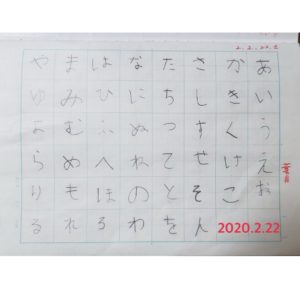 あいうえお
かきくけこ
さしすせそ
たちつてと
なにぬねの
はひふへほ
まみむめも
やゆよらり
るれろわをん
2020.2.22